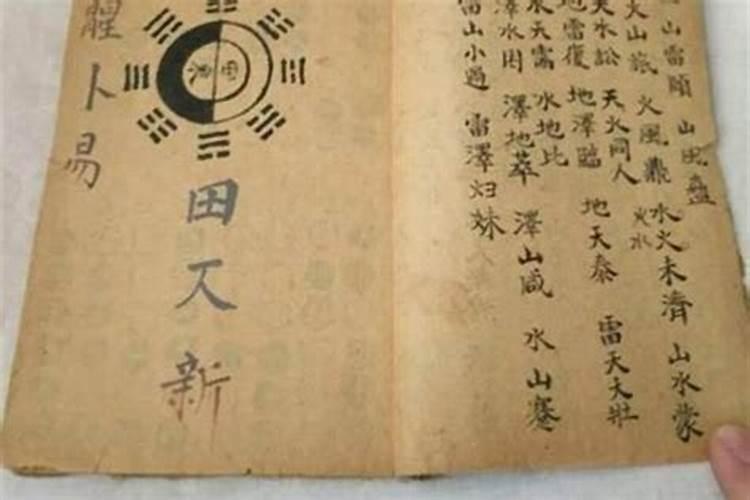 山雷頤 山風蠱
水火未濟 山水蒙
火山旅 火風鼎 火水
天水訟 天火同人
地天泰 雷天大壯
地雷復 地澤臨
水天需 水地比
澤水困 澤地萃 澤山咸 水山蹇
雷山小過 雷澤归妹
田
新
卜易